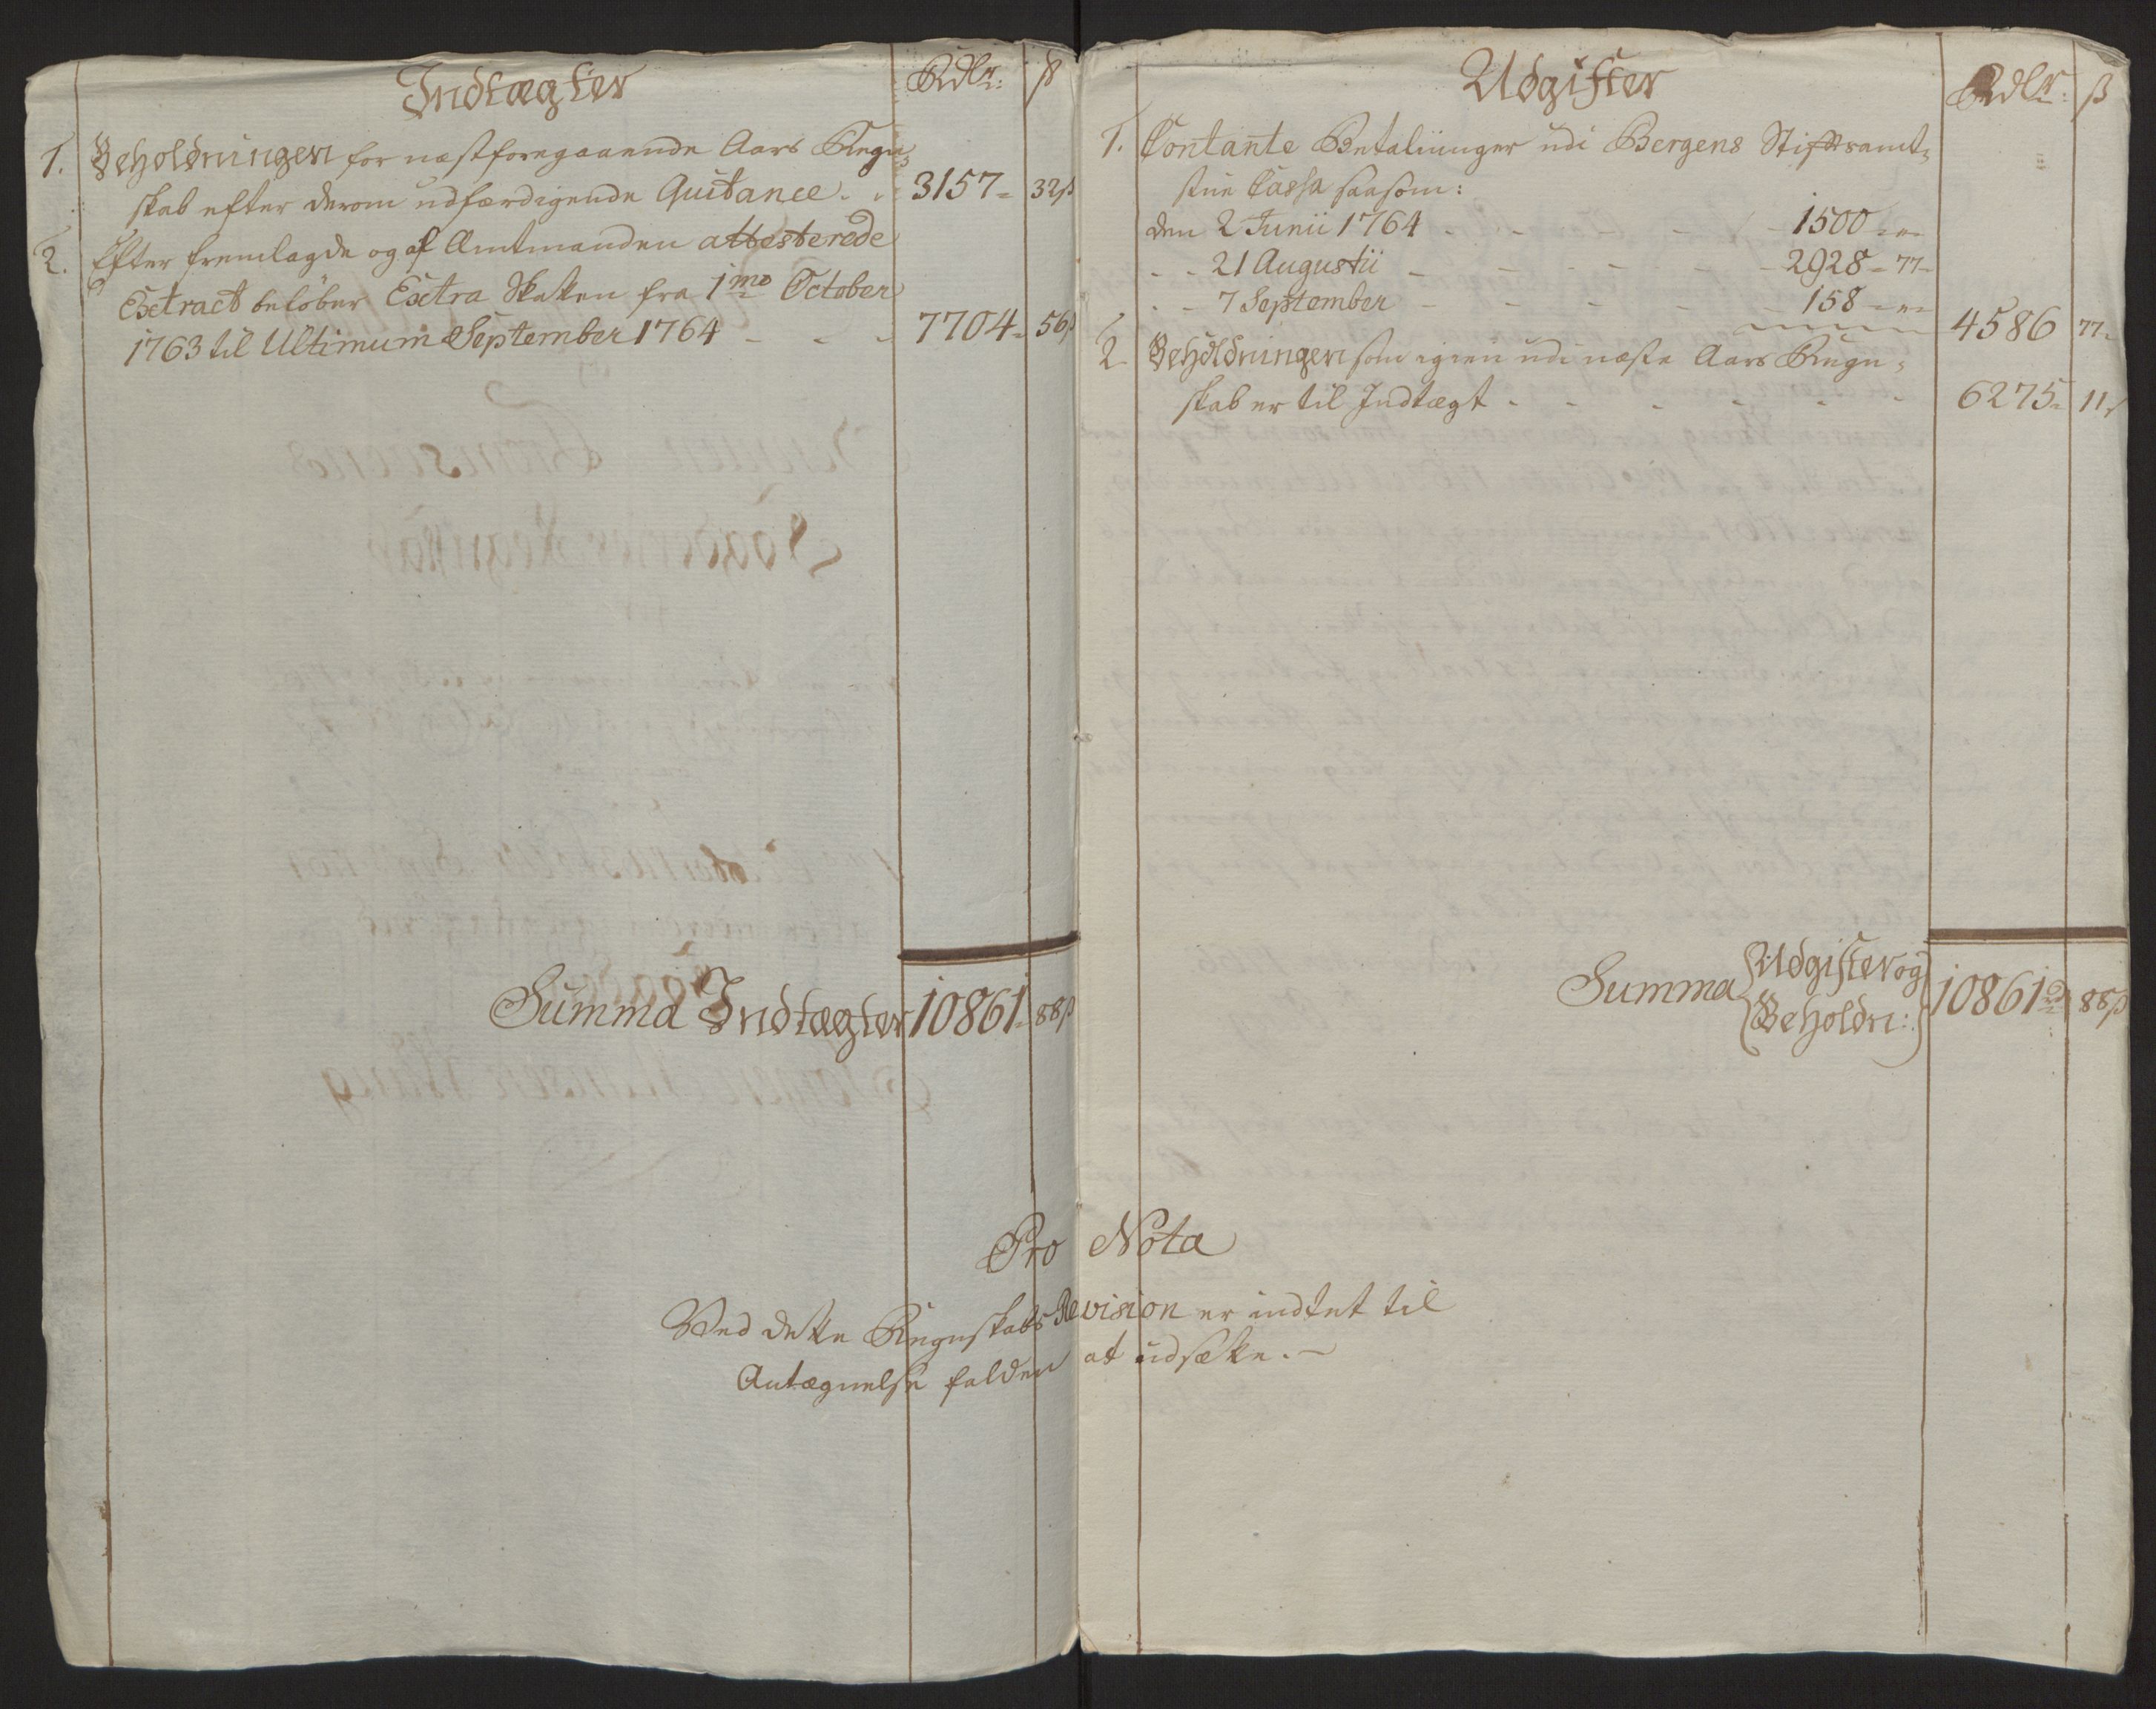 Indtægter
Rdlr: ß
1. Beholdningen for næstforegaaende Aars Regn-
skab efter derom udfærdigende Quitance. 3157 - 32 ß
2. Efter fremlagde og af Amtmanden attesterede
Extract beløber Extra Skatten fra 1mo October
1763 til Ultimum September 1764 - - - 7704 - 56 ß
Summa Indtægter 10861 - 88 ß
Udgifter
Rdlr: ß
1. Contante Betalninger udi Bergens Stiftsamt-
stue Cassa saasom:
den 2 Junii 1764 - - - - 1500 - „ -
- - 21 Augustii - - - - - 2928 - 77 -
- - 7 September - - - - 158 - „ -
4586 77 -
2 Beholdningen som igien udi næste Aars Regn-
skab er til Indtægt - - - - - - 6275 - 11 ß
Summa {Udgifter og Beholdn:} 10861 rd 88 ß
Pro Nota
Ved dette Regnskabs Revision er indtet til
Antægnelse falden at udsætte. -